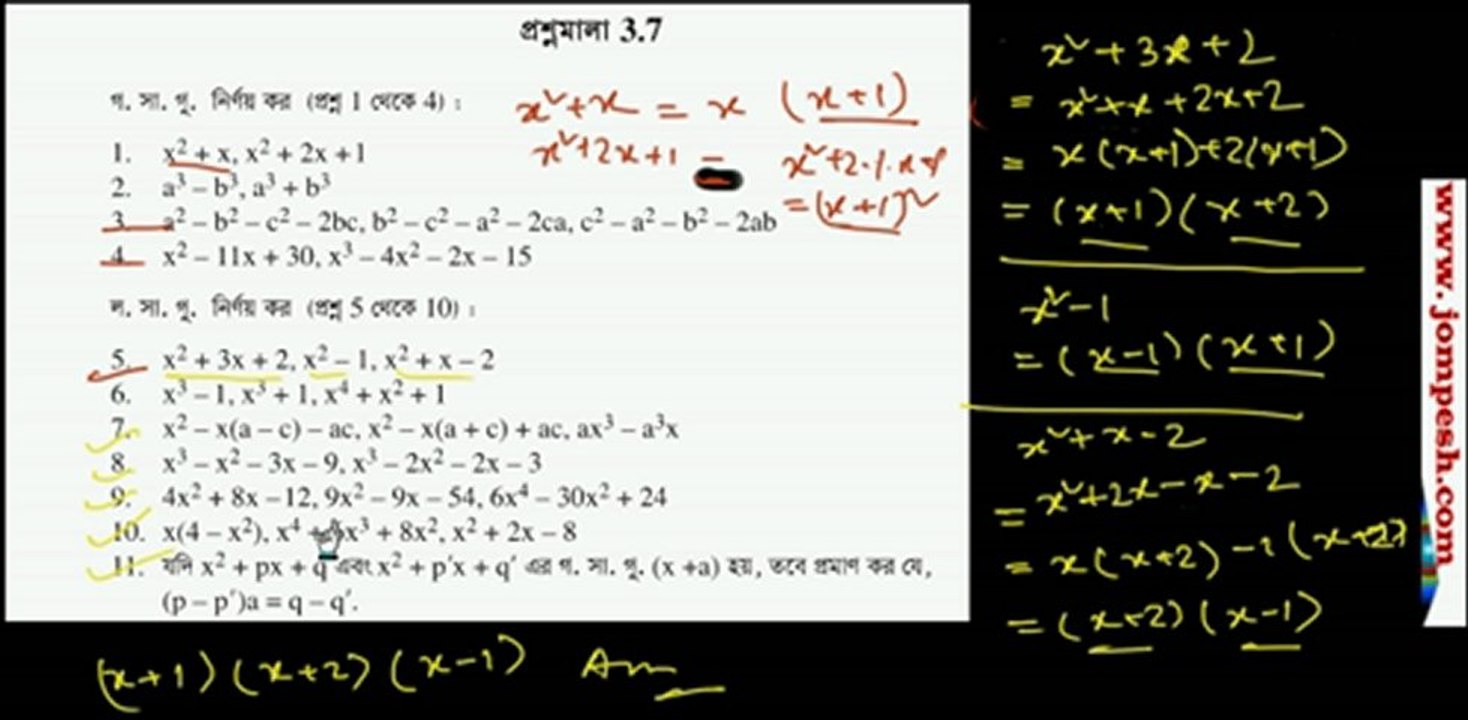 প্রশ্নমালা 3.7
গ. সা. গু. নির্ণয় কর (প্রশ্ন 1 থেকে 4) :
1. x² + x, x² + 2x + 1
2. a³ – b³, a³ + b³
3. a² – b² – c² – 2bc, b² – c² – a² – 2ca, c² – a² – b² – 2ab
4. x² – 11x + 30, x³ – 4x² – 2x – 15
ল. সা. গু. নির্ণয় কর (প্রশ্ন 5 থেকে 10) :
5. x² + 3x + 2, x² – 1, x² + x – 2
6. x³ – 1, x³ + 1, x⁴ + x² + 1
7. x² – x(a – c) – ac, x² – x(a + c) + ac, ax³ – a³x
8. x³ – x² – 3x – 9, x³ – 2x² – 2x – 3
9. 4x² + 8x – 12, 9x² – 9x – 54, 6x⁴ – 30x² + 24
10. x(4 – x²), x⁴ + x³ + 8x², x² + 2x – 8
11. যদি x² + px + q এবং x² + p′x + q′ এর গ. সা. গু. (x +a) হয়, তবে প্রমাণ কর যে,
(p – p′)a = q – q′.
x² + x = x (x+1)
x² + 2x + 1 = x² + 2.1.x +
= (x+1)²
x² + 3x + 2
= x² + x + 2x + 2
= x(x+1) + 2(x+1)
= (x+1)(x+2)
x² – 1
= (x–1)(x+1)
x² + x – 2
= x² + 2x – x – 2
= x(x+2) – 1(x+2)
= (x+2)(x–1)
(x+1)(x+2)(x–1) Ans
www.jompesh.com